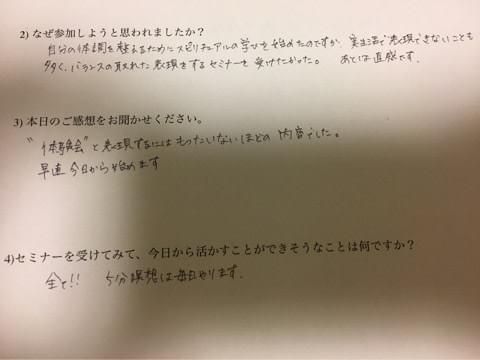 2) なぜ参加しようと思われましたか？
自分の体調を整えるためにスピリチュアルの学びを始めたのですが、実生活で表現できないことも
多く、バランスの取れた表現をするセミナーを受けたかった。 あとは直感です。
3) 本日のご感想をお聞かせください。
"体験会"と表現するにはもったいないほどの内容でした。
早速今日から始めます
4)セミナーを受けてみて、今日から活かすことができそうなことは何ですか？
全て!! 5分瞑想は毎日やります.